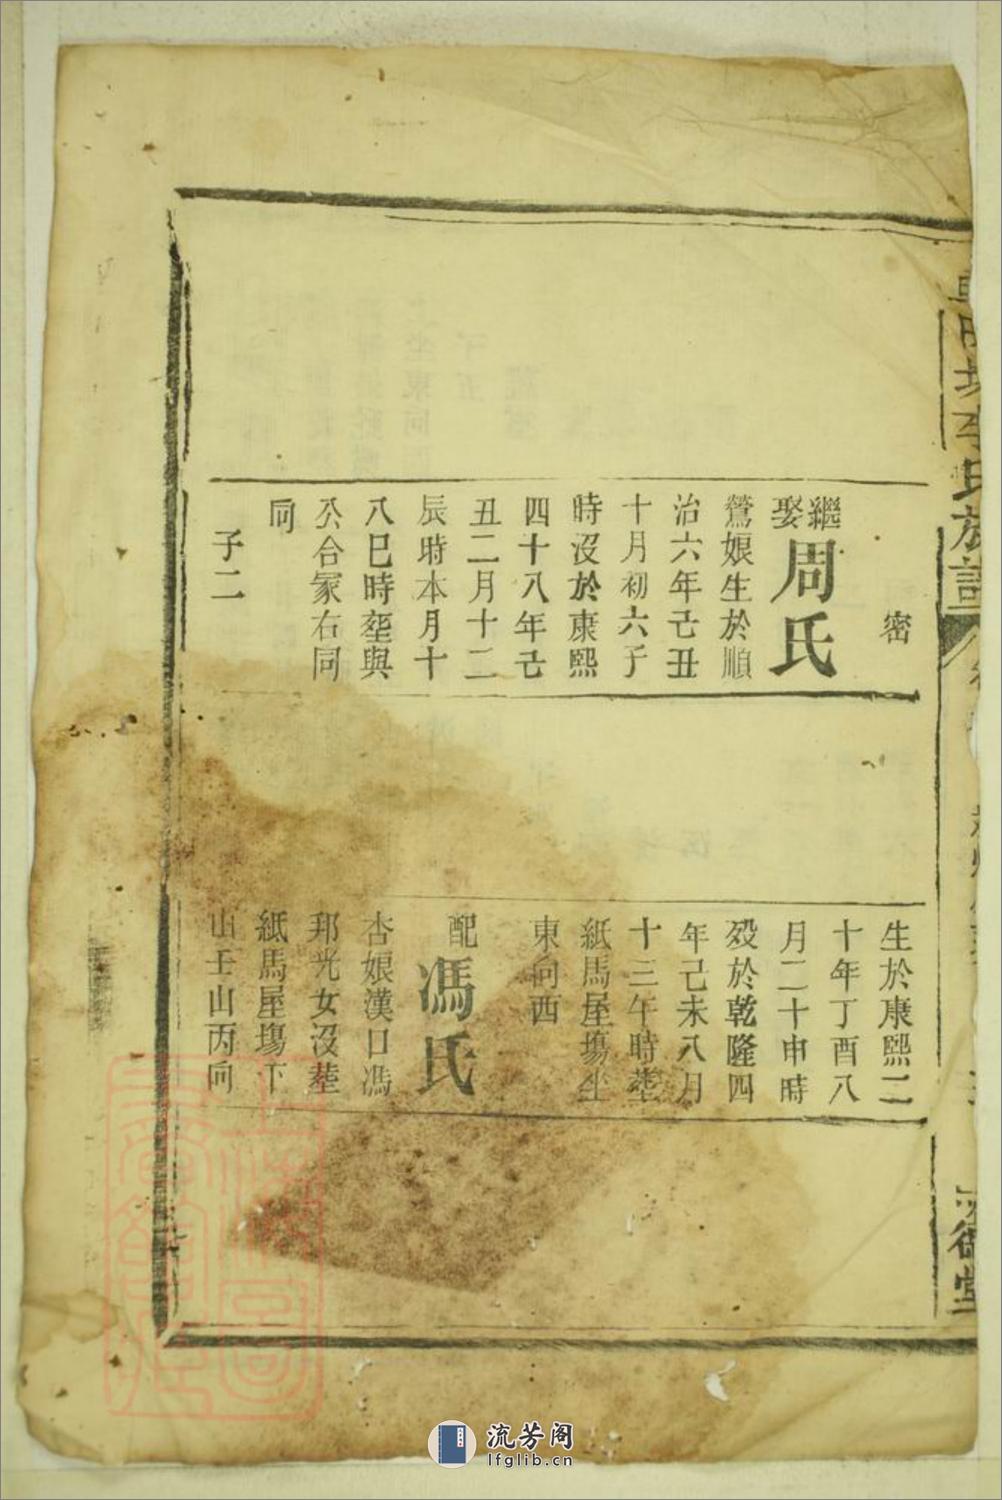 李氏族譜
德堂
密
繼娶周氏
鶯娘生於順
治六年己丑
十月初六子
時沒於康熙
四十八年己
丑二月十二
辰時本月十
八巳時塟與
公合冢右同
向
子二
生於康熙二
十年丁酉八
月二十申時
歿於乾隆四
年己未八月
十三午時塟
紙馬屋塲坐
東向西
配馮氏
杏娘漢口馮
邦光女沒塟
紙馬屋塲下
山壬山丙向
流芳阁
lfglib.cn